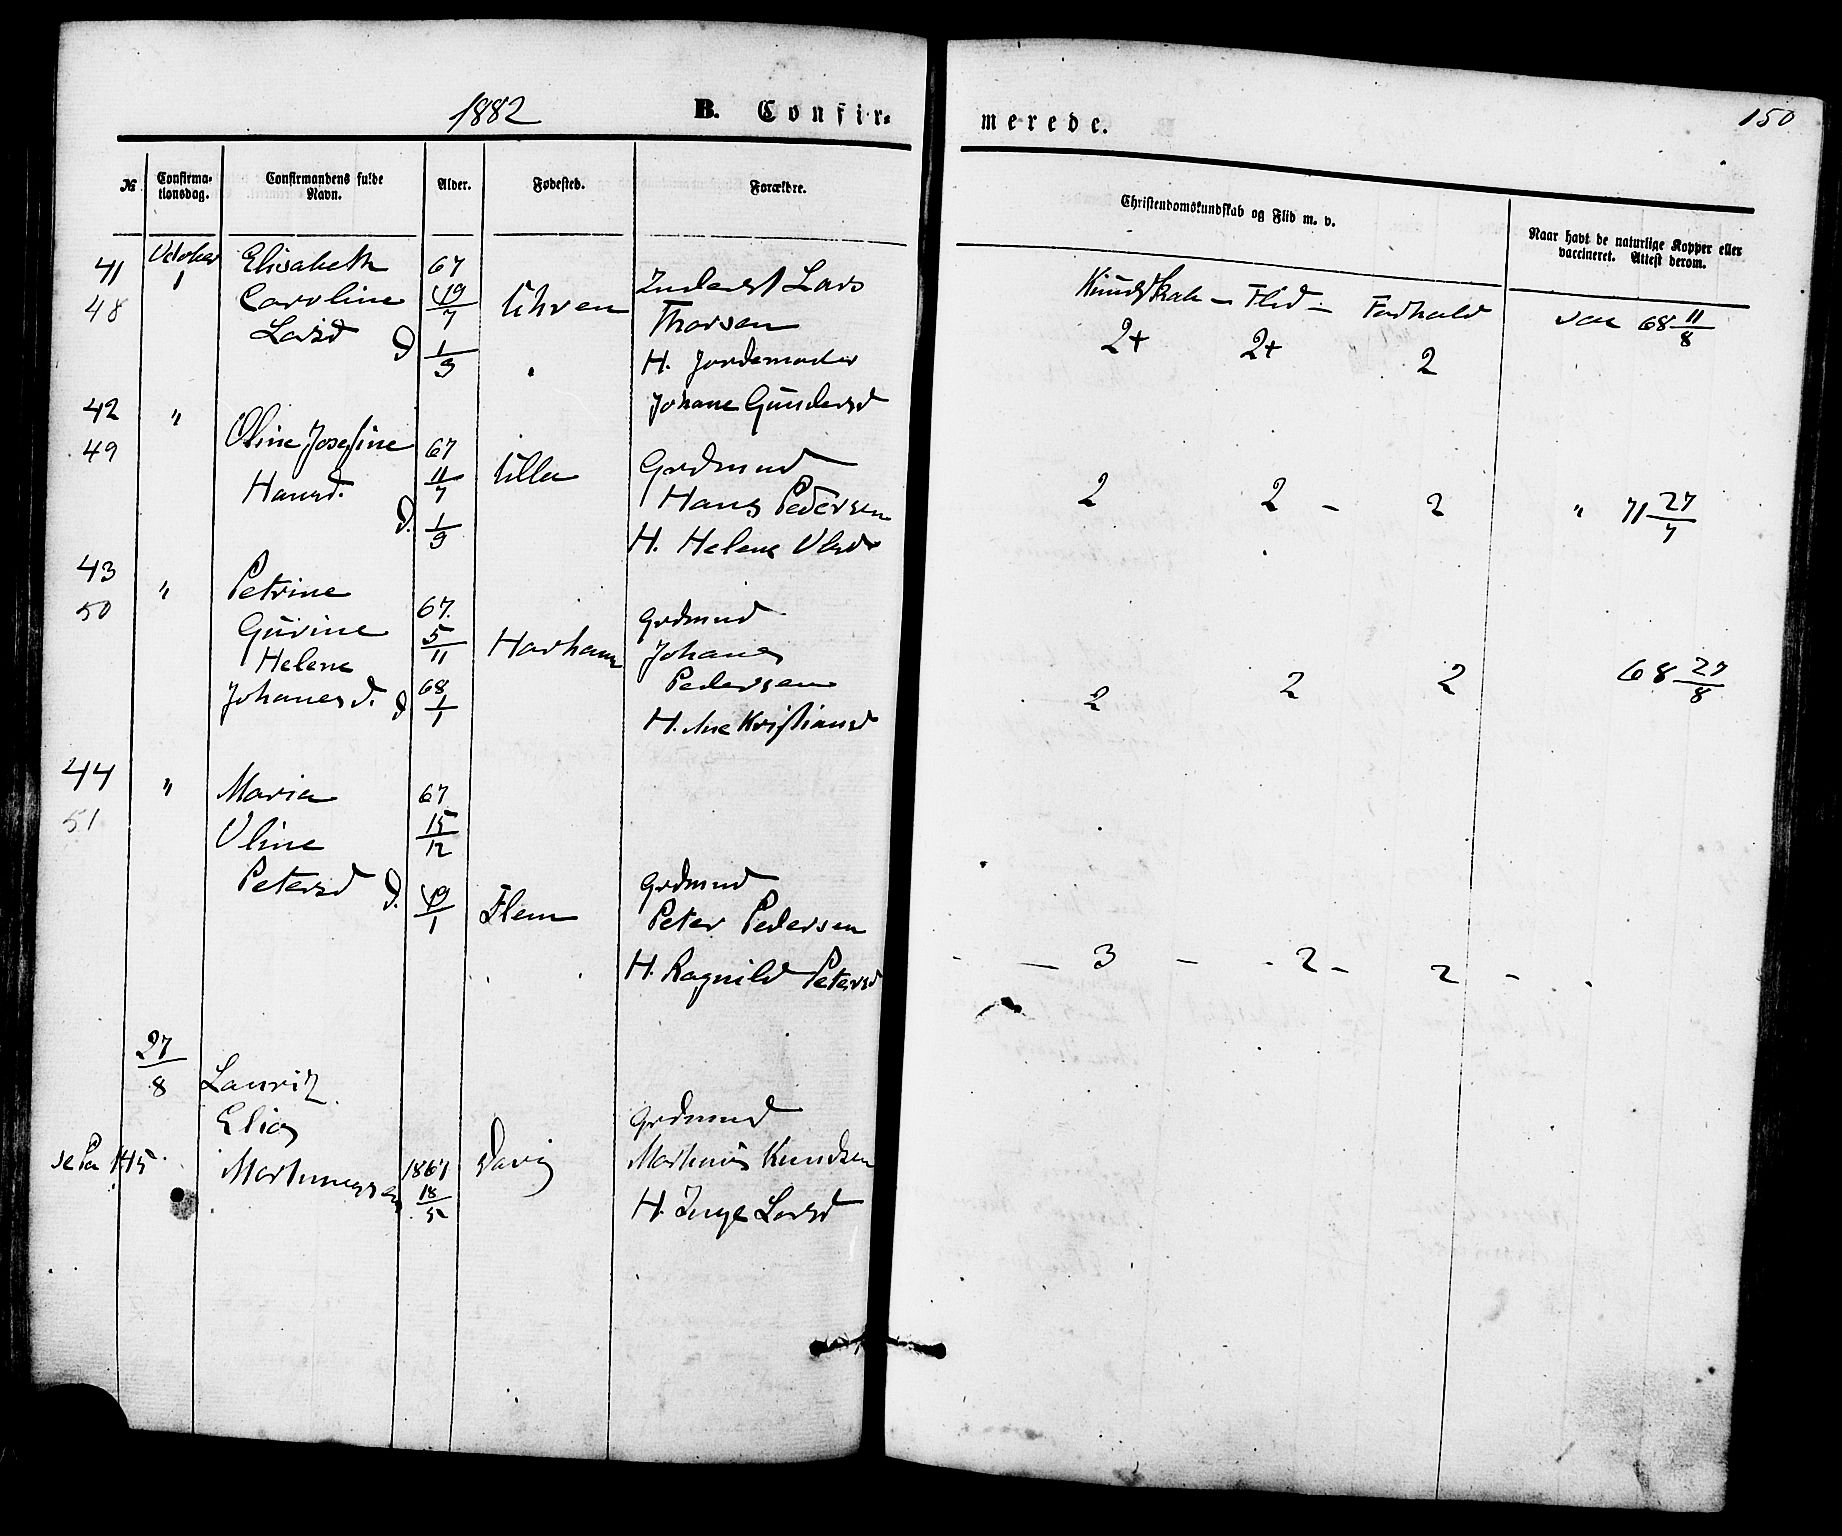 1882 B. Confir-
merede. 150
№ Confirma-tionsdag. Confirmandens fulde Navn. Alder. Fødested. Forældre.
Christendomskundskab og Flid m. v. Naar havt de naturlige Kopper eller vaccineret. Attest derom.
41 October 1 Elisabeth 67
48 Caroline 19/7 Uhren Inderst Lars
Larsd D 1/9 Thorsen
H. Jordemoder
Johane Gundersd
Kundskab – Flid – Forhold vac 68 11/8
2+ 2+ 2
42 " Oline Josefine 67
49 Hansd. 11/7 Ulla Grdmnd
D. 1/9 Hans Pedersen
H. Helene Olsd
2 2 – 2 " 71 27/7
43 " Petrine 67.
50 Gurine 5/11 Harham Grdmnd
Helene Johanes
Johanesd. d 68 1/1 Pedersen
H. Ane Kristiansd
2 2 2 68 27/8
44 " Maria 67
51 Oline 15/12
Petersd D. 19/1 Flem Grdmnd
Peter Pedersen
H. Ragnild Petersd
– 3 – 2 – 2 –
27/8 Lauritz
Elias Grdmnd
se Pa 145. Martinussen 1867 18/5 Martinus Knudsen
H. Inge Larsd